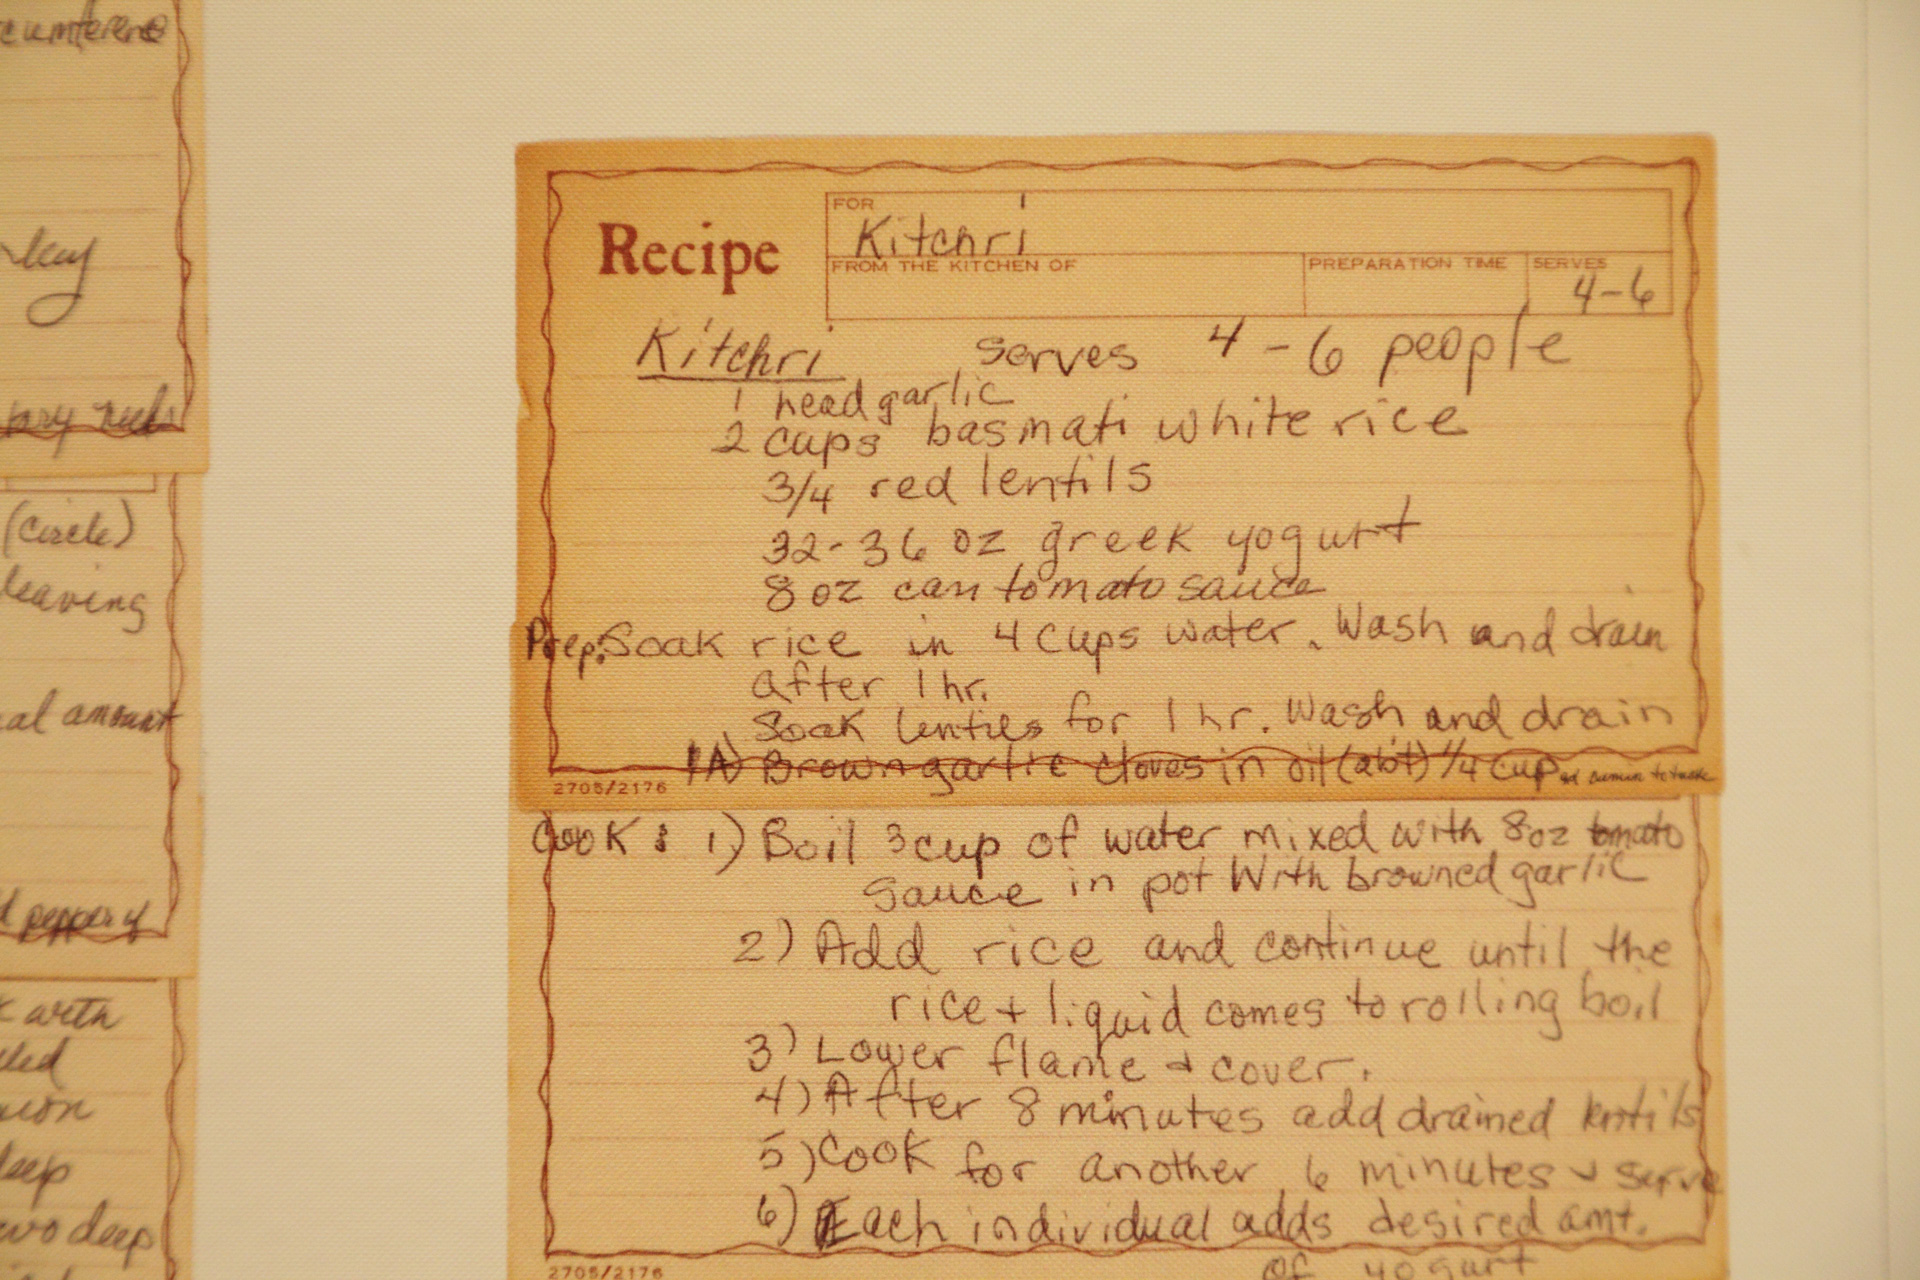 cumference
(circle)
leaving
amount
pepper
with
deep
two deep
Recipe
FOR
Kitchri
FROM THE KITCHEN OF
PREPARATION TIME
SERVES
4-6
Kitchri serves 4-6 people
1 head garlic
2 cups basmati white rice
3/4 red lentils
32-36 oz greek yogurt
8 oz can tomato sauce
Prep: Soak rice in 4 cups water. Wash and drain
after 1 hr.
Soak lentils for 1 hr. Wash and drain
1A) Brown garlic cloves in oil (abt) 1/4 cup
2705/2176
Cook: 1) Boil 3 cup of water mixed with 8oz tomato
sauce in pot with browned garlic
2) Add rice and continue until the
rice + liquid comes to rolling boil
3) Lower flame + cover.
4) After 8 minutes add drained lentils
5) Cook for another 6 minutes + serve
6) Each individual adds desired amt.
of yogurt
2705/2176